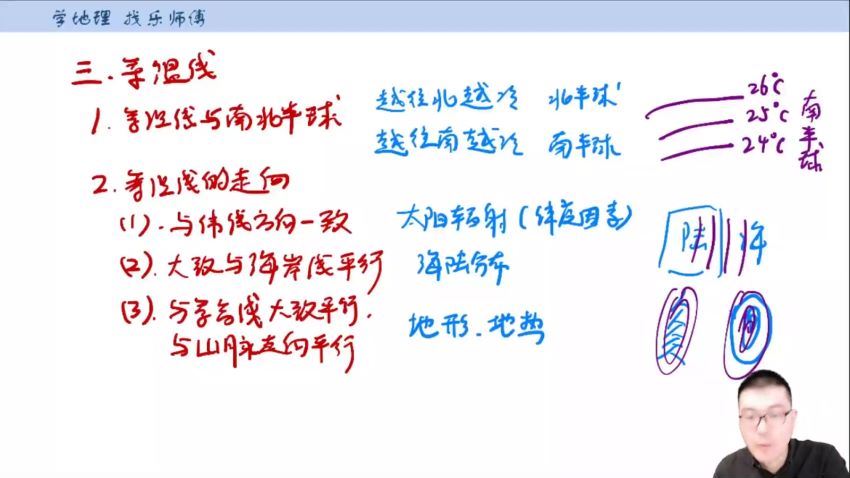 学地理 找乐师傅
三.等温线
1.等温线与南北半球
越往北越冷 北半球
越往南越冷 南半球
26℃
25℃
24℃
南半球
2.等温线的走向
(1).与纬线方向一致 太阳辐射(纬度因素)
(2).大致与海岸线平行 海陆分布
(3).与等高线大致平行.
与山脉走向平行
地形.地势
陆 海